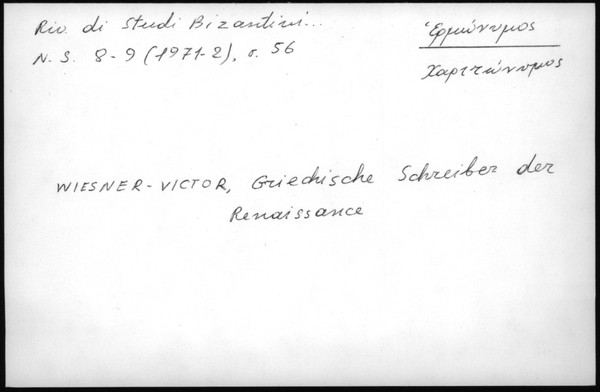 Riv. di Studi Bizantini...
N. S. 8-9 (1971-2), σ. 56
Ἑρμώνυμος
Χαριτώνυμος
WIESNER-VICTOR, Griechische Schreiber der
Renaissance